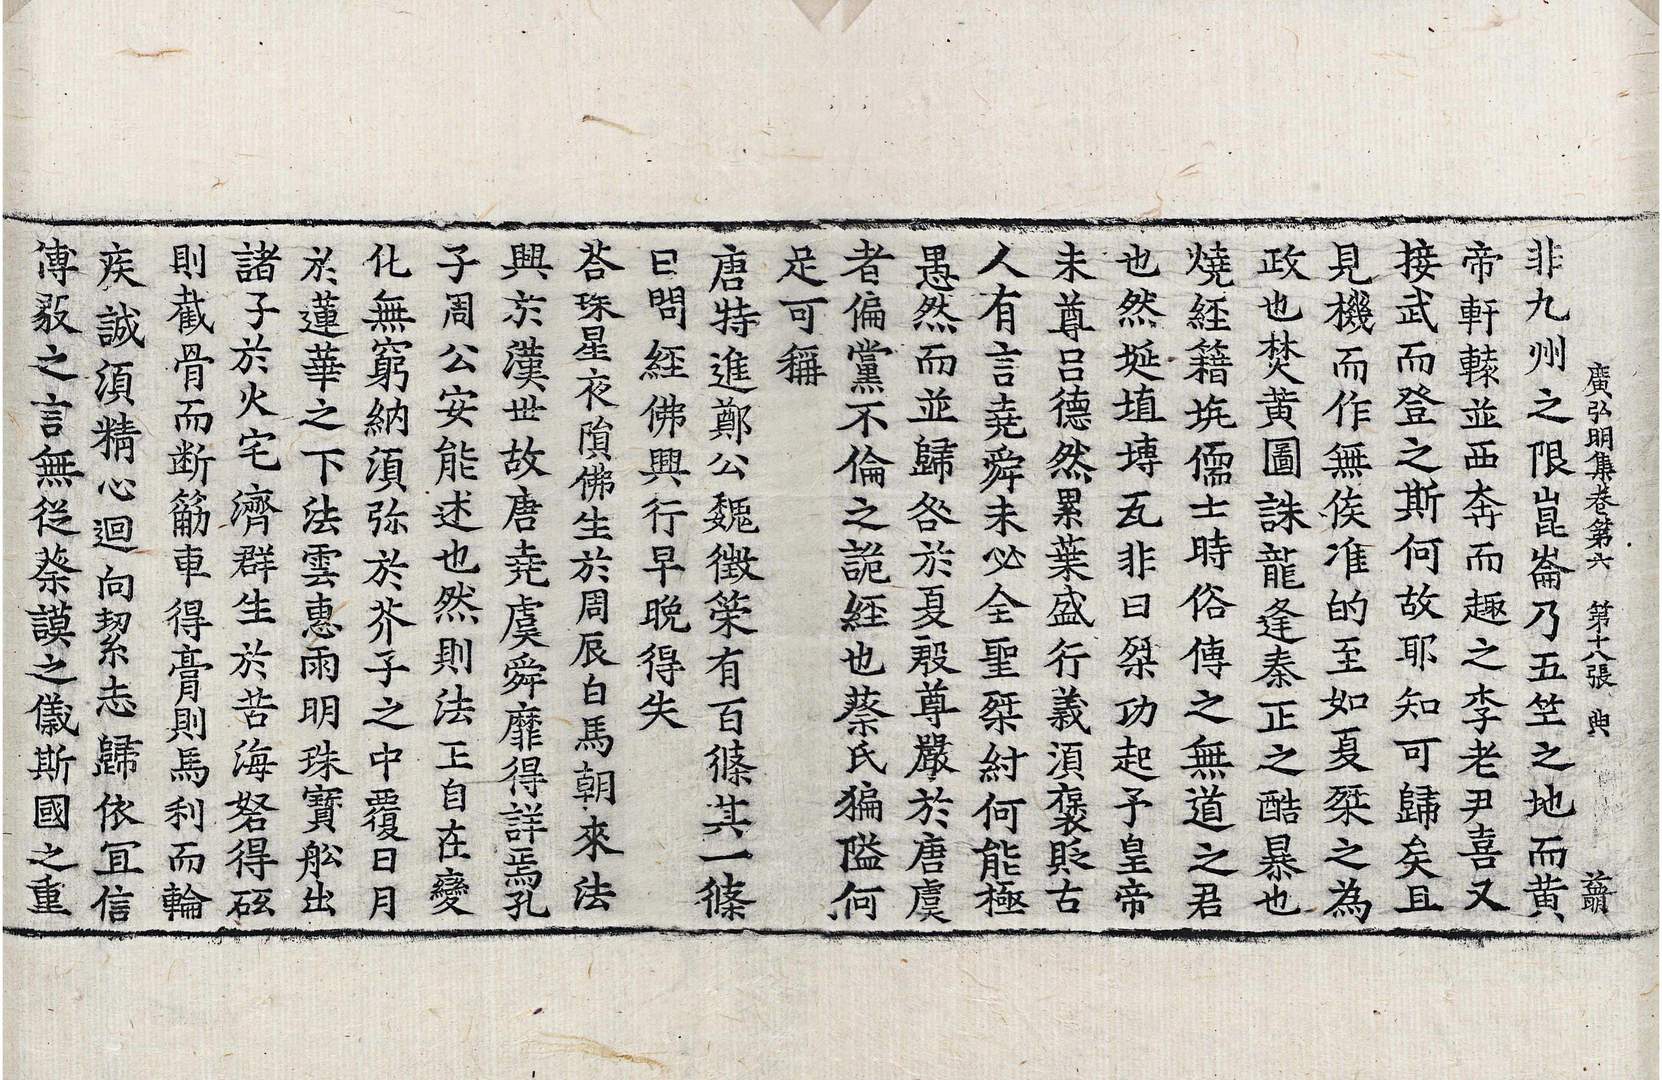 廣弘明集卷第六　第十八張　典
非九州之限崑崙乃五竺之地而黃
帝軒轅並西奔而趣之李老尹喜又
接武而登之斯何故耶知可歸矣且
見機而作無俟准的至如夏桀之為
政也焚黃圖誅龍逢秦正之酷暴也
燒經籍坑儒士時俗傳之無道之君
也然埏埴塼瓦非曰桀功起予皇帝
未尊呂德然累葉盛行義須褒貶古
人有言堯舜未必全聖桀紂何能極
愚然而並歸咎於夏殷尊嚴於唐虞
者偏黨不倫之詭經也蔡氏猵隘何
足可稱
唐特進鄭公魏徵策有百條其一條
曰問經佛興行早晚得失
荅珠星夜隕佛生於周辰白馬朝來法
興於漢世故唐堯虞舜靡得詳焉孔
子周公安能述也然則法王自在變
化無窮納須弥於芥子之中覆日月
於蓮華之下法雲惠雨明珠寶舩出
諸子於火宅濟群生於苦海砮得砝
則截骨而断筋車得膏則馬利而輪
疾誠須精心迴向絜志歸依宜信
傅毅之言無從蔡謨之儀斯國之重